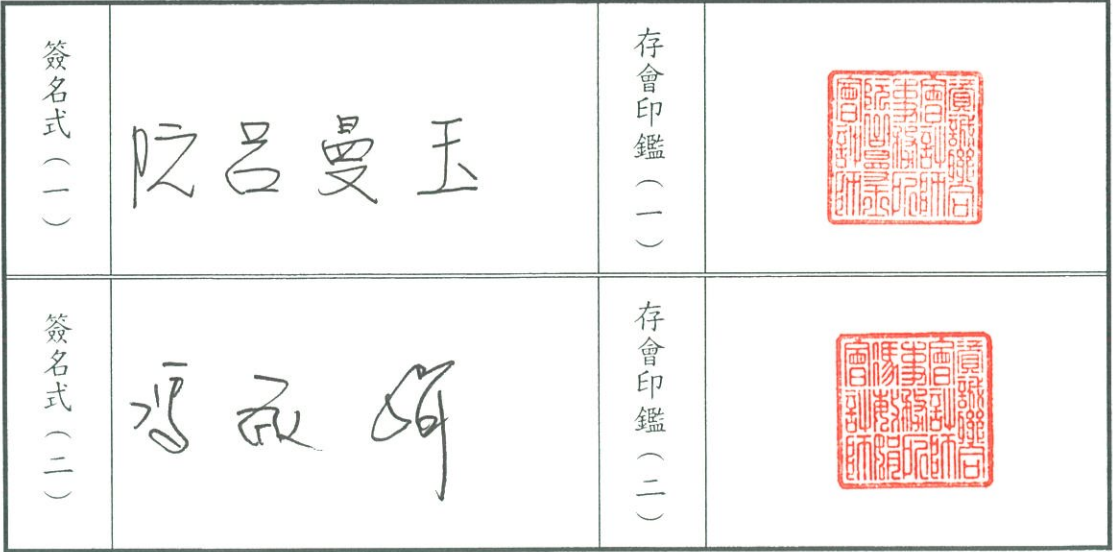 簽名式（一）
阮呂曼玉
存會印鑑（一）
資誠聯合
會計師
事務所
阮呂曼玉
會計師
簽名式（二）
馮敏娟
存會印鑑（二）
資誠聯合
會計師
事務所
馮敏娟
會計師